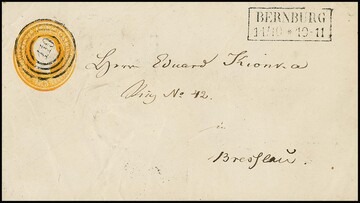 BERNBURG
11/10 * 10-11
Herrn Eduard Kionka
Ring No 42.
in
Breslau.